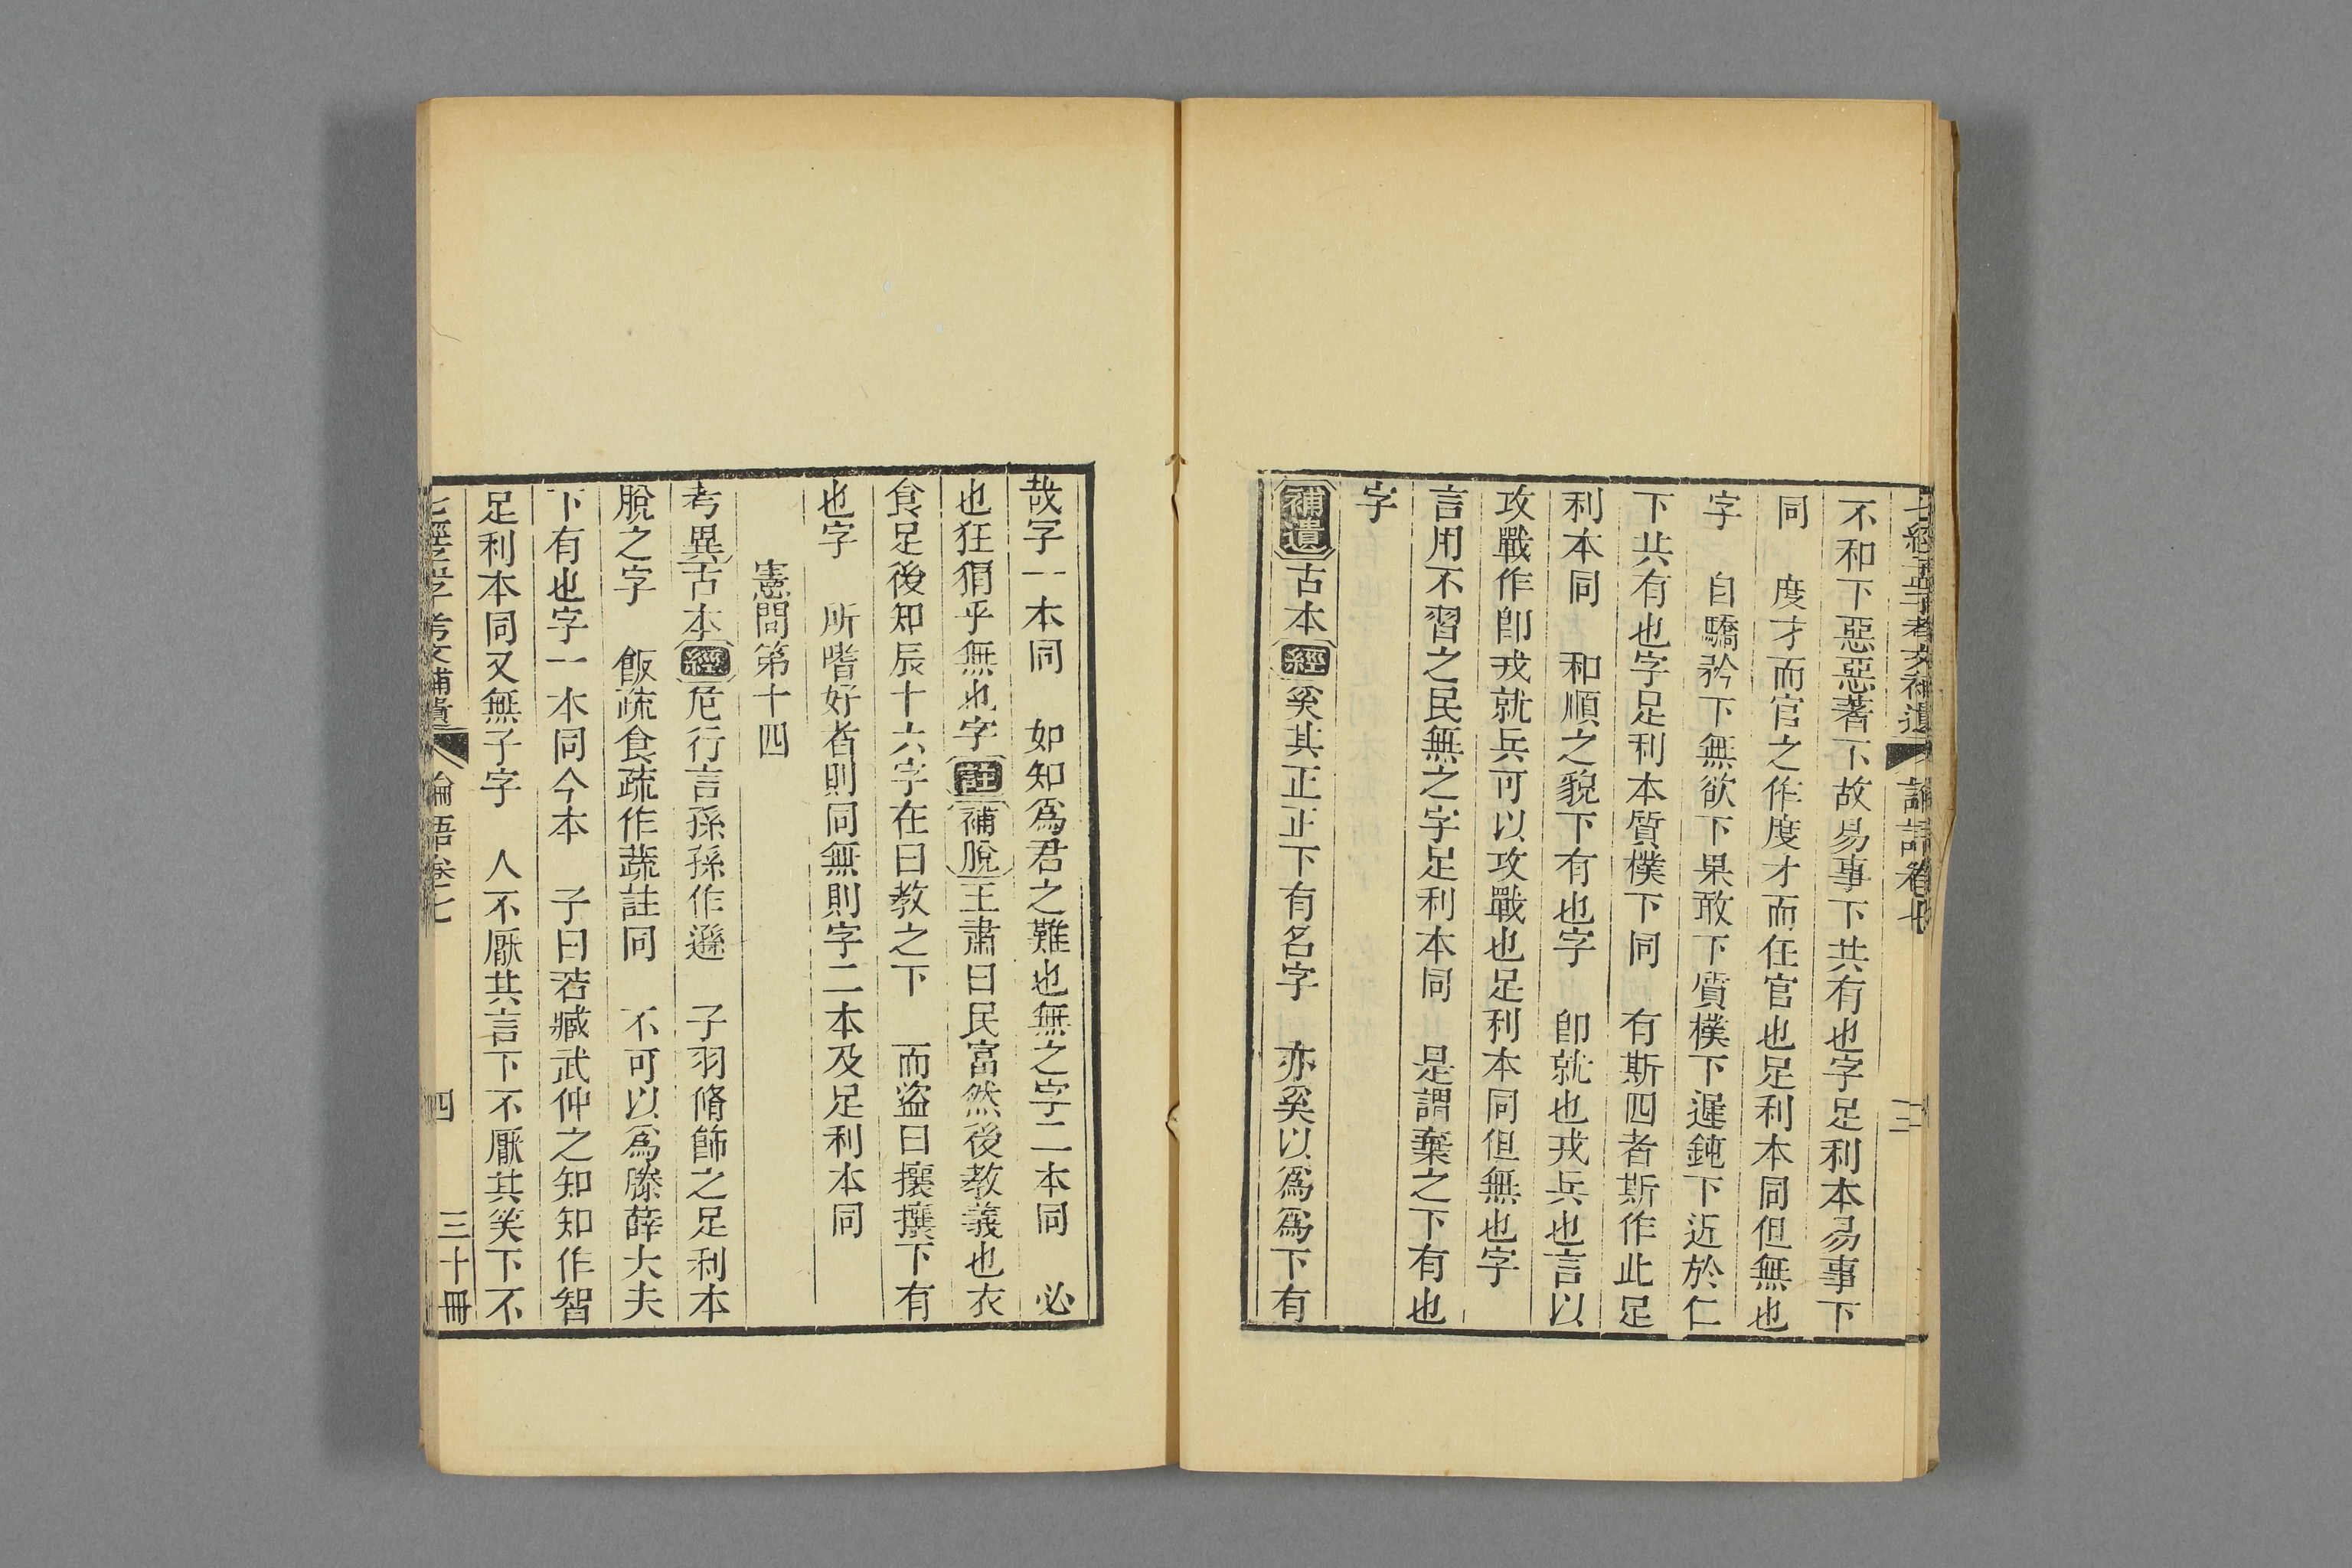 七經孟子考文補遺 論語卷七 三
不和下惡惡著下故易事下共有也字足利本易事下
同 度才而官之作度才而任官也足利本同但無也
字 自驕矜下無欲下果敢下質樸下遲鈍下近於仁
下共有也字足利本質樸下同 有斯四者斯作此足
利本同 和順之貌下有也字 卽就也戎兵也言以
攻戰作卽戎就兵可以攻戰也足利本同但無也字
言用不習之民無之字足利本同 是謂棄之下有也
字
補遺古本經奚其正正下有名字 亦奚以爲爲下有
哉字一本同 如知爲君之難也無之字二本同 必
也狂狷乎無也字註補脫王肅曰民富然後教義也衣
食足後知辰十六字在曰教之下 而盜曰攘攘下有
也字 所嗜好者則同無則字二本及足利本同
憲問第十四
考異古本經危行言孫孫作遜 子羽脩飾之足利本
脫之字 飯疏食疏作蔬註同 不可以爲滕薛大夫
下有也字一本同今本 子曰若臧武仲之知知作智
足利本同又無子字 人不厭其言下不厭其笑下不
七經孟子考文補遺 論語卷七 四 三十冊